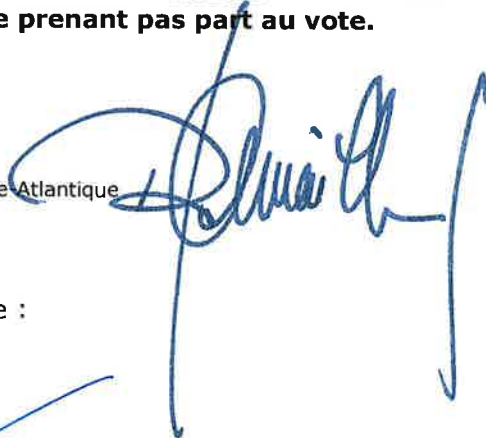 e prenant pas part au vote.
e-Atlantique
e :